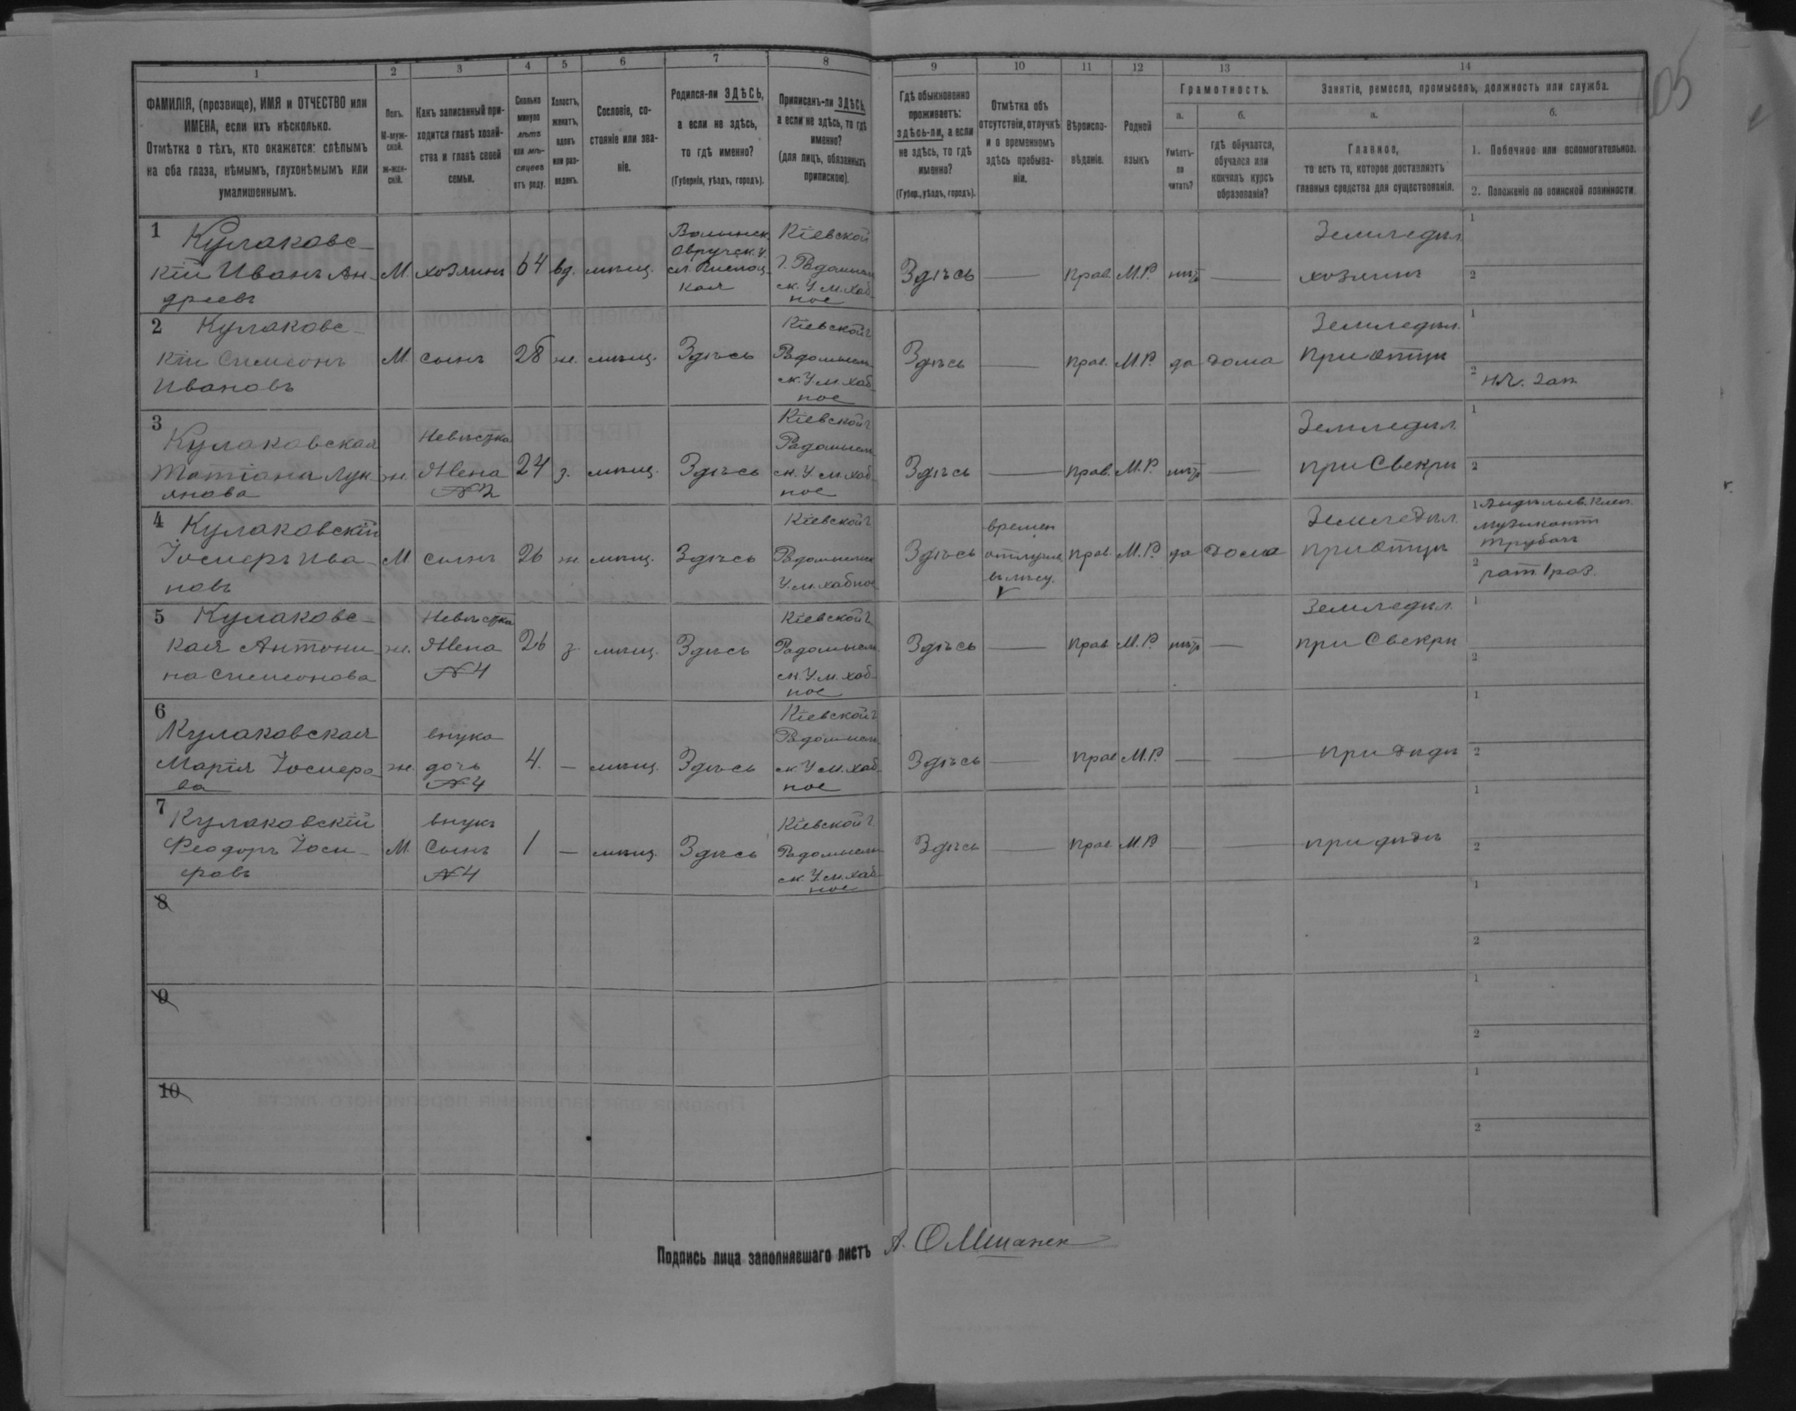 105
1 2 3 4 5 6 7 8 9 10 11 12 13 14
ФАМИЛІЯ, (прозвище), ИМЯ и ОТЧЕСТВО или
ИМЕНА, если ихъ нѣсколько.
Отмѣтка о тѣхъ, кто окажется: слѣпымъ
на оба глаза, нѣмымъ, глухонѣмымъ или
умалишеннымъ.
Полъ.
М-муж-
ской.
Ж-жен-
скій.
Какъ записанный при-
ходится главѣ хозяй-
ства и главѣ своей
семьи.
Сколько
минуло
лѣтъ
или мѣ-
сяцевъ
отъ роду.
Холостъ,
женатъ,
вдовъ
или раз-
веденъ.
Сословіе, со-
стояніе или зва-
ніе.
Родился-ли ЗДѢСЬ,
а если не здѣсь,
то гдѣ именно?
(Губернія, уѣздъ, городъ).
Приписанъ-ли ЗДѢСЬ,
а если не здѣсь, то гдѣ
именно?
(для лицъ, обязанныхъ
припискою).
Гдѣ обыкновенно
проживаетъ:
здѣсь-ли, а если
не здѣсь, то гдѣ
именно?
(Губер., уѣздъ, городъ).
Отмѣтка объ
отсутствіи, отлучкѣ
и о временномъ
здѣсь пребыва-
ніи.
Вѣроиспо-
вѣданіе.
Родной
языкъ
Грамотность.
а.
Умѣетъ-
ли
читать?
б.
гдѣ обучается,
обучался или
кончилъ курсъ
образованія?
Занятіе, ремесло, промыселъ, должность или служба.
а.
Главное,
то есть то, которое доставляетъ
главныя средства для существованія.
б.
1. Побочное или вспомогательное.
2. Положеніе по воинской повинности.
1 Кулаковс-
кій Иванъ Ан-
дреевъ
М хозяинъ 64 вд. мѣщ.
Волынск.
Овручск. у.
Кіевской
Г. Радомысл
ск. У. м. Хаб-
ное
Здѣсь — Прав М.Р. нѣтъ —
Земледѣл.
хозяинъ
1
2
2 Кулаковс-
кій Симеонъ
Ивановъ
М сынъ 28 ж. мѣщ. Здѣсь
Кіевской г
Радомысл
ск. У м. Хаб-
ное
Здѣсь — Прав. М.Р. да дома
Земледѣл.
при отцѣ
1
2
3 Кулаковская
Татіана Лук
янова
ж.
Невѣстка
Жена
№2
24 з. мѣщ. Здѣсь
Кіевской г
Радомысл
ск. У. м. Хаб-
ное
Здѣсь — Прав. М.Р. нѣтъ —
Земледѣл
при Свекрѣ
1
2
4 Кулаковскій
Іосифъ Ива-
новъ
М сынъ 26 ж мѣщ. Здѣсь
Кіевской г
Радомысл
У. м. Хабное
Здѣсь
времен.
отлучил
Прав М.Р. да дома
Земледѣл.
при отцѣ
1
музыкантъ
трубачъ
2 рат. 1 раз.
5 Кулаковс-
кая Антони-
на Симеонова
ж.
Невѣстка
Жена
№4
26 з. мѣщ. Здѣсь
Кіевской г
Радомысл
ск. У. м. Хаб-
ное
Здѣсь — Прав М.Р. нѣтъ —
Земледѣл.
при Свекрѣ
1
2
6
Кулаковская
Марія Іосифо-
ва
ж.
внука
дочь
№4
4. — мѣщ. Здѣсь
Кіевской г
Радомысл
ск У м. Хаб-
ное
Здѣсь — Прав М.Р. — —
при дѣдѣ
1
2
7
Кулаковскій
Феодоръ Іоси-
фовъ
М.
внукъ
Сынъ
№4
1 — мѣщ. Здѣсь
Кіевской г.
Радомысл
ск У. м. Хаб-
ное
Здѣсь — Прав М.Р — —
при дѣдѣ
1
2
8
1
2
9
1
2
10
1
2
Подпись лица заполнявшаго листъ